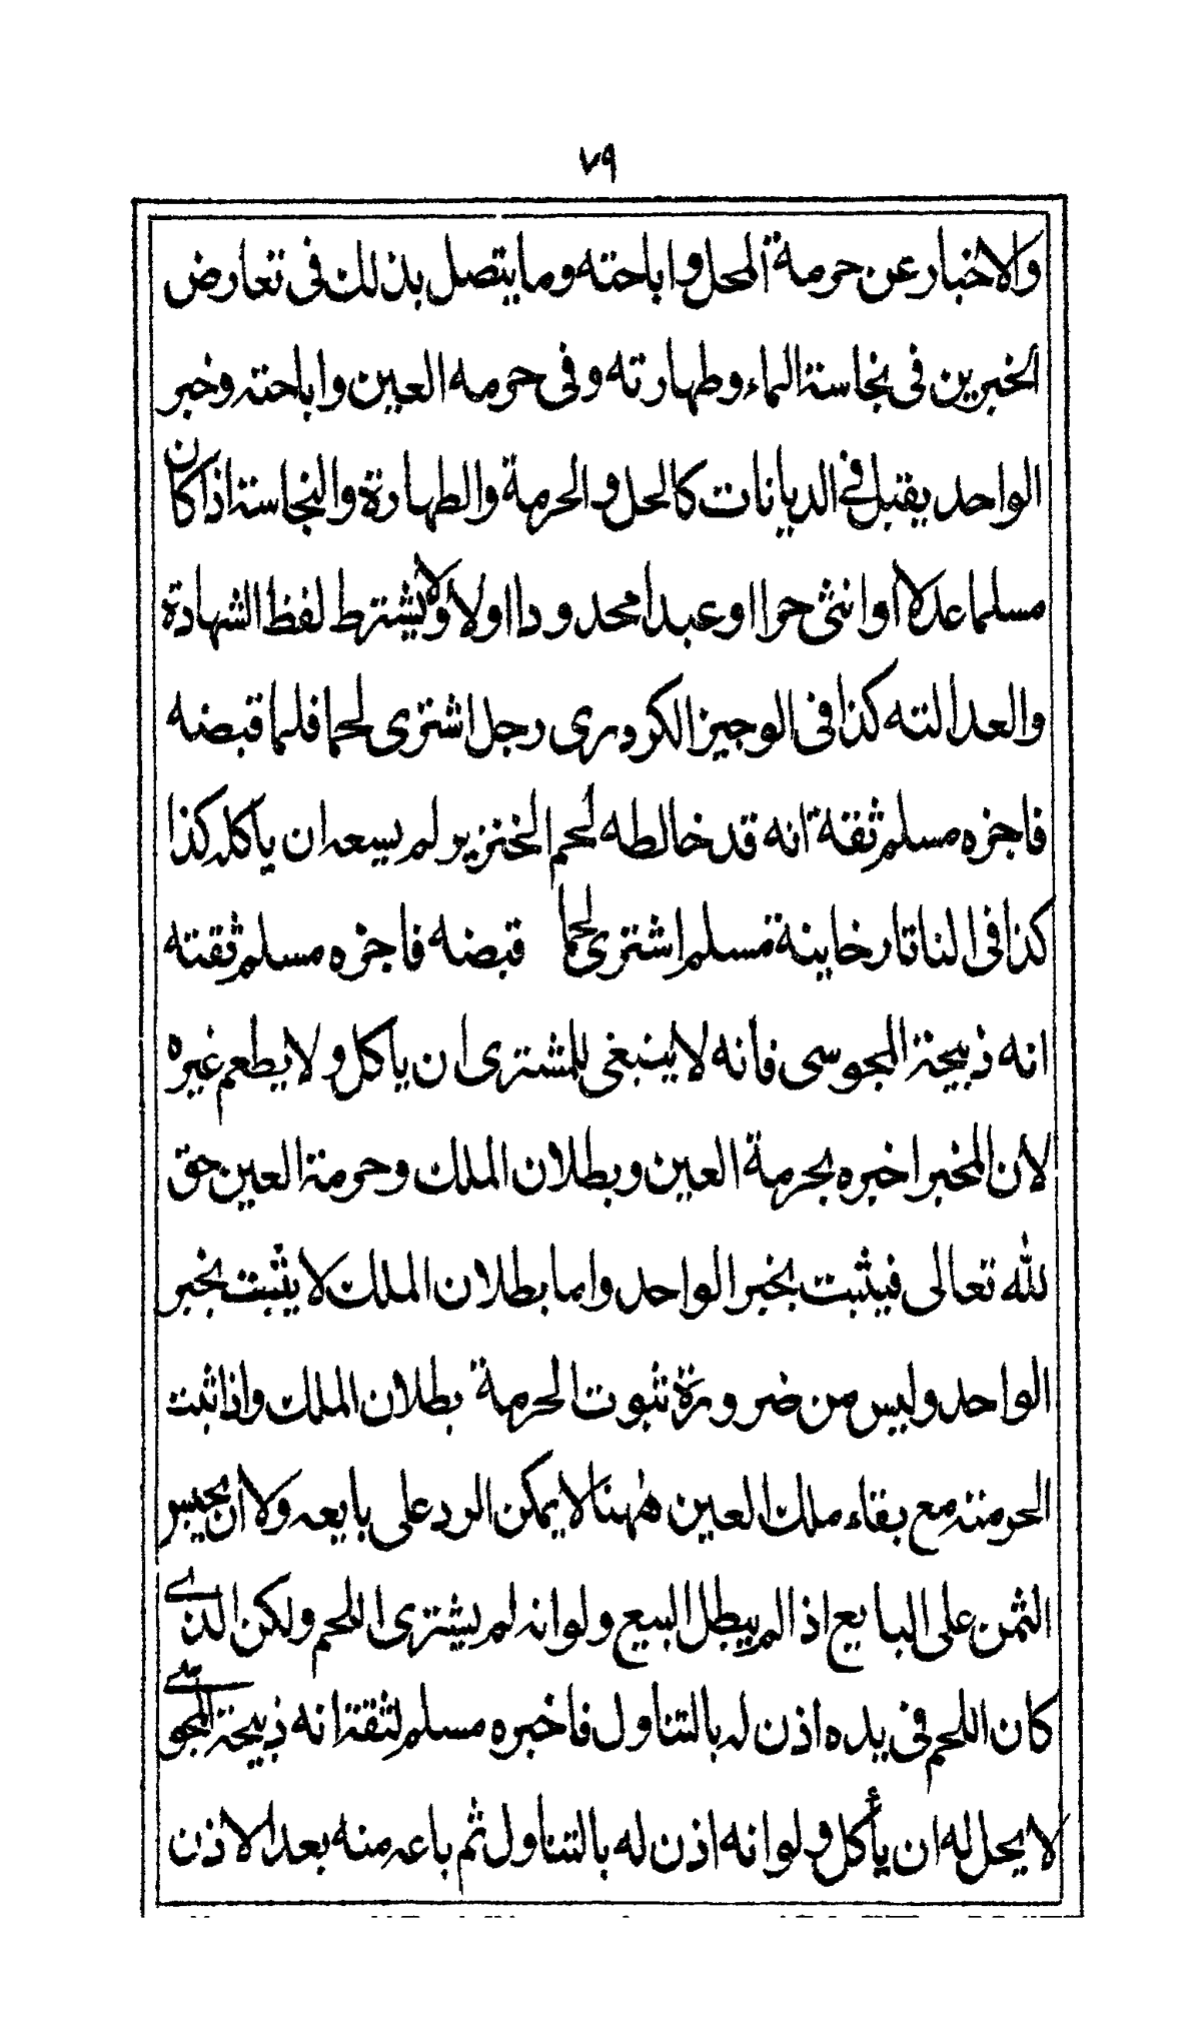 ٧٩
والاخبار عن حرمة المحل واباحته وما يتصل بذلك فى تعارض
الخبرين فى نجاسة الماء وطهارته وفى حرمه العين واباحته وخبر
الواحد يقبل فى الديانات كالحل والحرمة والطهارة والنجاسة اذا كان
مسلما عدلا او انثى حرا او عبدا محدودا او لا ولا يشترط لفظ الشهادة
والعدالته كذا فى الوجيز الكرورى رجل اشترى لحما فلما قبضه
فاخبره مسلم ثقة انه قد خالطه لحم الخنزير لم يسعه ان يأكله كذا
كذا فى التاتارخاينة مسلم اشترى لحما قبضه فاخبره مسلم ثقته
انه ذبيحة المجوسى فانه لا ينبغى للمشترى ان ياكل ولا يطعم غيره
لأن المخبر اخبره بحرمة العين وبطلان الملك وحرمة العين حق
لله تعالى فيثبت بخبر الواحد واما بطلان الملك لا يثبت بخبر
الواحد وليس من ضرورة ثبوت الحرمة بطلان الملك واذا ثبت
الحرمته مع بقاء ملك العين ههنا لا يمكن الرد على بايعه ولا ان يحبس
الثمن على البايع اذا لم يبطل البيع ولو انه لم يشترى اللحم ولكن الذى
كان اللحم فى يده اذن له بالتناول فاخبره مسلم لثقة انه ذبيحة المجوسى
لا يحل له ان يأكل ولو انه اذن له بالتناول ثم باعه منه بعد الاذن